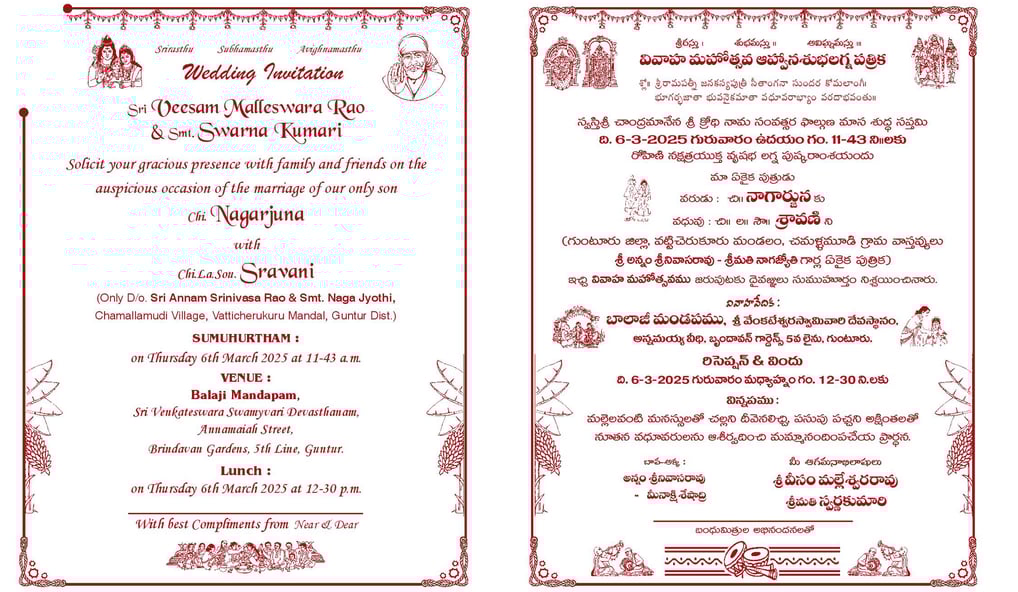 Srirasthu Subhamasthu Avighnamasthu
Wedding Invitation
Sri Veesam Malleswara Rao
& Smt. Swarna Kumari
Solicit your gracious presence with family and friends on the
auspicious occasion of the marriage of our only son
Chi. Nagarjuna
with
Chi.La.Sou. Sravani
(Only D/o. Sri Annam Srinivasa Rao & Smt. Naga Jyothi,
Chamallamudi Village, Vatticherukuru Mandal, Guntur Dist.)
SUMUHURTHAM :
on Thursday 6th March 2025 at 11-43 a.m.
VENUE :
Balaji Mandapam,
Sri Venkateswara Swamyvari Devasthanam,
Annamaiah Street,
Brindavan Gardens, 5th Line, Guntur.
Lunch :
on Thursday 6th March 2025 at 12-30 p.m.
With best Compliments from Near & Dear
శ్రీరస్తు । శుభమస్తు ॥ అవిఘ్నమస్తు ॥
వివాహ మహోత్సవ ఆహ్వానశుభలగ్న పత్రిక
శ్లో॥ శ్రీరామపత్నీ జనకస్యపుత్రీ సీతాంగనా సుందర కోమలాంగీ।
భూగర్భజాతా భువనైకమాతా వధూవరాభ్యాం వరదాభవంతు॥
స్వస్తిశ్రీ చాంద్రమానేన శ్రీ క్రోధి నామ సంవత్సర ఫాల్గుణ మాస శుద్ధ సప్తమి
ది. 6-3-2025 గురువారం ఉదయం గం. 11-43 ని॥లకు
రోహిణి నక్షత్రయుక్త వృషభ లగ్న పుష్కరాంశయందు
మా ఏకైక పుత్రుడు
వరుడు : చి॥ నాగార్జున కు
వధువు : చి॥ ల॥ సౌ॥ శ్రావణి ని
(గుంటూరు జిల్లా, వట్టిచెరుకూరు మండలం, చమళ్ళమూడి గ్రామ వాస్తవ్యులు
శ్రీ అన్నం శ్రీనివాసరావు - శ్రీమతి నాగజ్యోతి గార్ల ఏకైక పుత్రిక)
ఇచ్చి వివాహ మహోత్సవము జరుపుటకు దైవజ్ఞులు సుముహూర్తం నిశ్చయించినారు.
వివాహవేదిక :
బాలాజీ మండపము, శ్రీ వేంకటేశ్వరస్వామివారి దేవస్థానం,
అన్నమయ్య వీధి, బృందావన్ గార్డెన్స్, 5వ లైను, గుంటూరు.
రిసెప్షన్ & విందు
ది. 6-3-2025 గురువారం మధ్యాహ్నం గం. 12-30 ని.లకు
విన్నపము :
మల్లెలవంటి మనస్సులతో చల్లని దీవెనలిచ్చి, పసుపు పచ్చని అక్షింతలతో
నూతన వధూవరులను ఆశీర్వదించి మమ్మానందింపచేయ ప్రార్థన.
బావ-అక్క :
అన్నం శ్రీనివాసరావు
- మీనాక్షి శేషాద్రి
మీ ఆగమనాభిలాషులు
శ్రీ వీసం మల్లేశ్వరరావు
శ్రీమతి స్వర్ణకుమారి
బంధుమిత్రుల అభినందనలతో